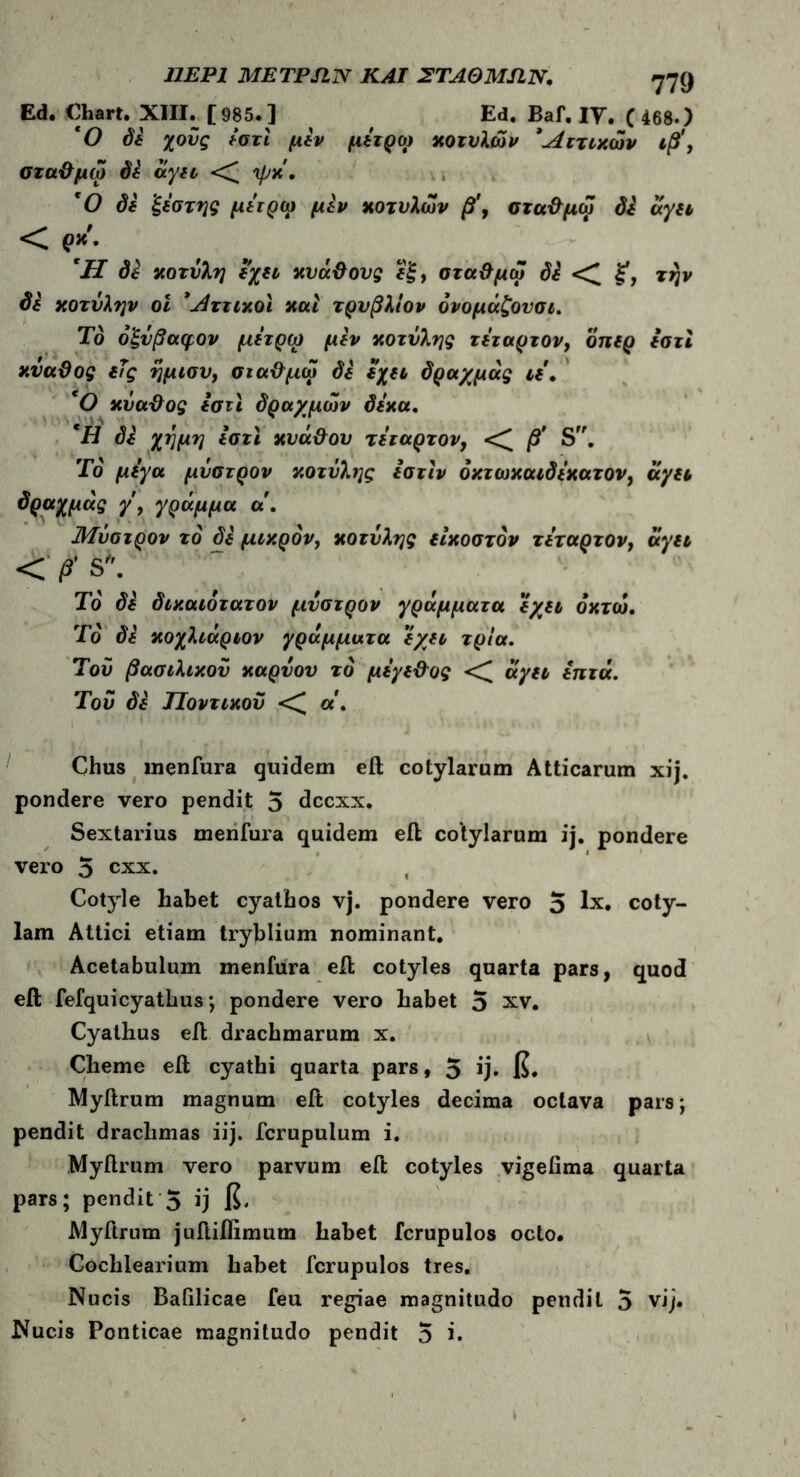 ΠΕΡΙ ΜΕΤΡΩΝ ΚΑΙ ΣΤΑΘΜΩΝ. 779
Ed. Chart. XIII. [985.] Ed. Baſ. IV. (468.)
Ὁ δὲ χοῦς ἐστὶ μὲν μέτρῳ κοτυλῶν Ἀττικῶν ιβʹ,
σταθμῷ δὲ ἄγει < ψκʹ.
Ὁ δὲ ξέστης μέτρῳ μὲν κοτυλῶν βʹ, σταθμῷ δὲ ἄγει
< ρκʹ.
Ἡ δὲ κοτύλη ἔχει κυάθους ἓξ, σταθμῷ δὲ < ξʹ, τὴν
δὲ κοτύλην οἱ Ἀττικοὶ καὶ τρυβλίον ὀνομάζουσι.
Τὸ ὀξύβαφον μέτρῳ μὲν κοτύλης τέταρτον, ὅπερ ἐστὶ
κύαθος εἷς ἥμισυ, σταθμῷ δὲ ἔχει δραχμὰς ιεʹ.
Ὁ κύαθος ἐστὶ δραχμῶν δέκα.
Ἡ δὲ χήμη ἐστὶ κυάθου τέταρτον, < βʹ Sʺ.
Τὸ μέγα μύστρον κοτύλης ἐστὶν ὀκτωκαιδέκατον, ἄγει
δραχμὰς γʹ, γράμμα αʹ.
Μύστρον τὸ δὲ μικρὸν, κοτύλης εἰκοστὸν τέταρτον, ἄγει
< βʹ Sʺ.
Τὸ δὲ δικαιότατον μύστρον γράμματα ἔχει ὀκτώ.
Τὸ δὲ κοχλιάριον γράμματα ἔχει τρία.
Τοῦ βασιλικοῦ καρύου τὸ μέγεθος < ἄγει ἑπτά.
Τοῦ δὲ Ποντικοῦ < αʹ.
Chus menſura quidem eſt cotylarum Atticarum xij.
pondere vero pendit ʒ dccxx.
Sextarius menſura quidem eſt cotylarum ij. pondere
vero ʒ cxx.
Cotyle habet cyathos vj. pondere vero ʒ lx. coty-
lam Attici etiam tryblium nominant.
Acetabulum menſura eſt cotyles quarta pars, quod
eſt ſeſquicyathus; pondere vero habet ʒ xv.
Cyathus eſt drachmarum x.
Cheme eſt cyathi quarta pars, ʒ ij. ß.
Myſtrum magnum eſt cotyles decima octava pars;
pendit drachmas iij. ſcrupulum i.
Myſtrum vero parvum eſt cotyles vigeſima quarta
pars; pendit ʒ ij ß.
Myſtrum juſtiſſimum habet ſcrupulos octo.
Cochlearium habet ſcrupulos tres.
Nucis Baſilicae ſeu regiae magnitudo pendit ʒ vij.
Nucis Ponticae magnitudo pendit ʒ i.